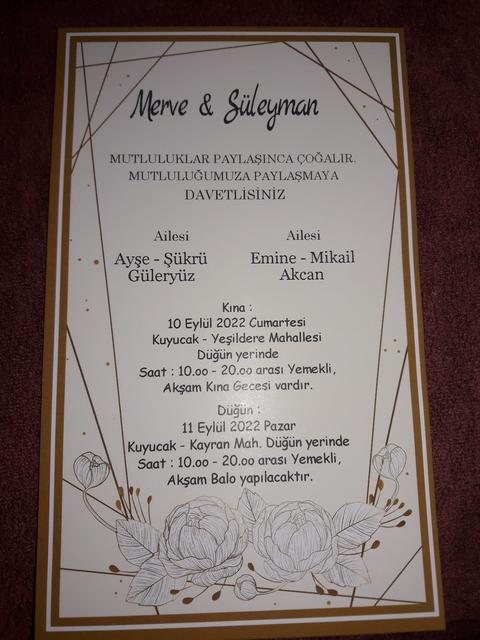 Merve & Süleyman
MUTLULUKLAR PAYLAŞINCA ÇOĞALIR.
MUTLULUĞUMUZA PAYLAŞMAYA
DAVETLİSİNİZ
Ailesi
Ayşe - Şükrü
Güleryüz
Ailesi
Emine - Mikail
Akcan
Kına :
10 Eylül 2022 Cumartesi
Kuyucak - Yeşildere Mahallesi
Düğün yerinde
Saat : 10.oo - 20.oo arası Yemekli,
Akşam Kına Gecesi vardır.
Düğün :
11 Eylül 2022 Pazar
Kuyucak - Kayran Mah. Düğün yerinde
Saat : 10.oo - 20.oo arası Yemekli,
Akşam Balo yapılacaktır.